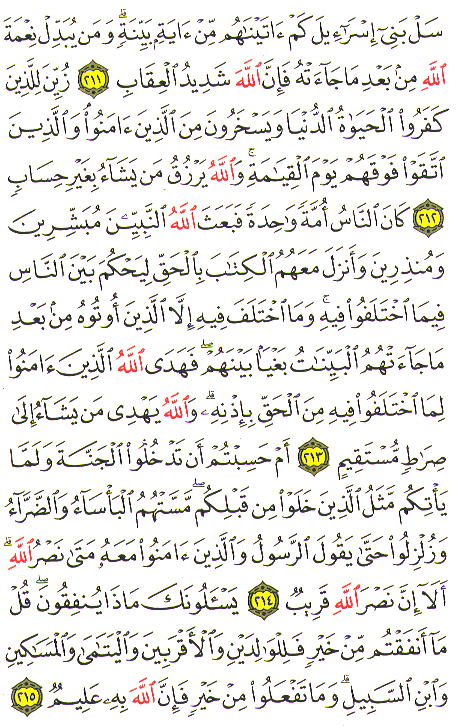 سَلْ بَنِىٓ إِسْرَٰٓءِيلَ كَمْ ءَاتَيْنَٰهُم مِّنْ ءَايَةٍۭ بَيِّنَةٍۗ وَمَن يُبَدِّلْ نِعْمَةَ
ٱللَّهِ مِنۢ بَعْدِ مَا جَآءَتْهُ فَإِنَّ ٱللَّهَ شَدِيدُ ٱلْعِقَابِ ٢١١ زُيِّنَ لِلَّذِينَ
كَفَرُوا۟ ٱلْحَيَوٰةُ ٱلدُّنْيَا وَيَسْخَرُونَ مِنَ ٱلَّذِينَ ءَامَنُوا۟ۘ وَٱلَّذِينَ
ٱتَّقَوْا۟ فَوْقَهُمْ يَوْمَ ٱلْقِيَٰمَةِۗ وَٱللَّهُ يَرْزُقُ مَن يَشَآءُ بِغَيْرِ حِسَابٍ
٢١٢ كَانَ ٱلنَّاسُ أُمَّةً وَٰحِدَةً فَبَعَثَ ٱللَّهُ ٱلنَّبِيِّۦنَ مُبَشِّرِينَ
وَمُنذِرِينَ وَأَنزَلَ مَعَهُمُ ٱلْكِتَٰبَ بِٱلْحَقِّ لِيَحْكُمَ بَيْنَ ٱلنَّاسِ
فِيمَا ٱخْتَلَفُوا۟ فِيهِۚ وَمَا ٱخْتَلَفَ فِيهِ إِلَّا ٱلَّذِينَ أُوتُوهُ مِنۢ بَعْدِ
مَا جَآءَتْهُمُ ٱلْبَيِّنَٰتُ بَغْيًۢا بَيْنَهُمْۖ فَهَدَى ٱللَّهُ ٱلَّذِينَ ءَامَنُوا۟
لِمَا ٱخْتَلَفُوا۟ فِيهِ مِنَ ٱلْحَقِّ بِإِذْنِهِۦۗ وَٱللَّهُ يَهْدِى مَن يَشَآءُ إِلَىٰ
صِرَٰطٍ مُّسْتَقِيمٍ ٢١٣ أَمْ حَسِبْتُمْ أَن تَدْخُلُوا۟ ٱلْجَنَّةَ وَلَمَّا
يَأْتِكُم مَّثَلُ ٱلَّذِينَ خَلَوْا۟ مِن قَبْلِكُمۖ مَّسَّتْهُمُ ٱلْبَأْسَآءُ وَٱلضَّرَّآءُ
وَزُلْزِلُوا۟ حَتَّىٰ يَقُولَ ٱلرَّسُولُ وَٱلَّذِينَ ءَامَنُوا۟ مَعَهُۥ مَتَىٰ نَصْرُ ٱللَّهِۗ
أَلَآ إِنَّ نَصْرَ ٱللَّهِ قَرِيبٌ ٢١٤ يَسْـَٔلُونَكَ مَاذَا يُنفِقُونَۖ قُلْ
مَآ أَنفَقْتُم مِّنْ خَيْرٍ فَلِلْوَٰلِدَيْنِ وَٱلْأَقْرَبِينَ وَٱلْيَتَٰمَىٰ وَٱلْمَسَٰكِينِ
وَٱبْنِ ٱلسَّبِيلِۗ وَمَا تَفْعَلُوا۟ مِنْ خَيْرٍ فَإِنَّ ٱللَّهَ بِهِۦ عَلِيمٌ ٢١٥